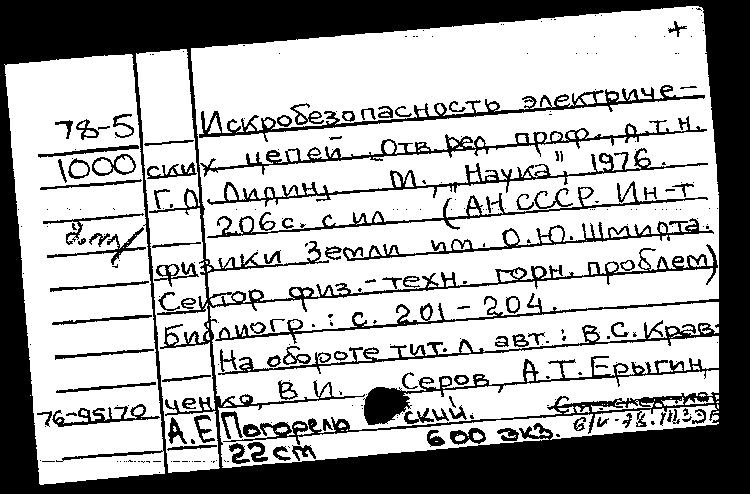 +
78-5
1000
2 m/
Искробезопасность электриче-
ских цепей. Отв. ред. проф., д.т.н.
Г.Д. Лидин. М., „Наука", 1976.
206 с. с ил. (АН СССР. Ин-т
физики Земли им. О.Ю. Шмидта.
Сектор физ.-техн. горн. проблем)
Библиогр.: с. 201-204.
На обороте тит. л. авт.: В.С. Крав-
ченко, В.И. Серов, А.Т. Ерыгин,
76-95170
А.Е Погорель ский.
22 cm 600 экз.